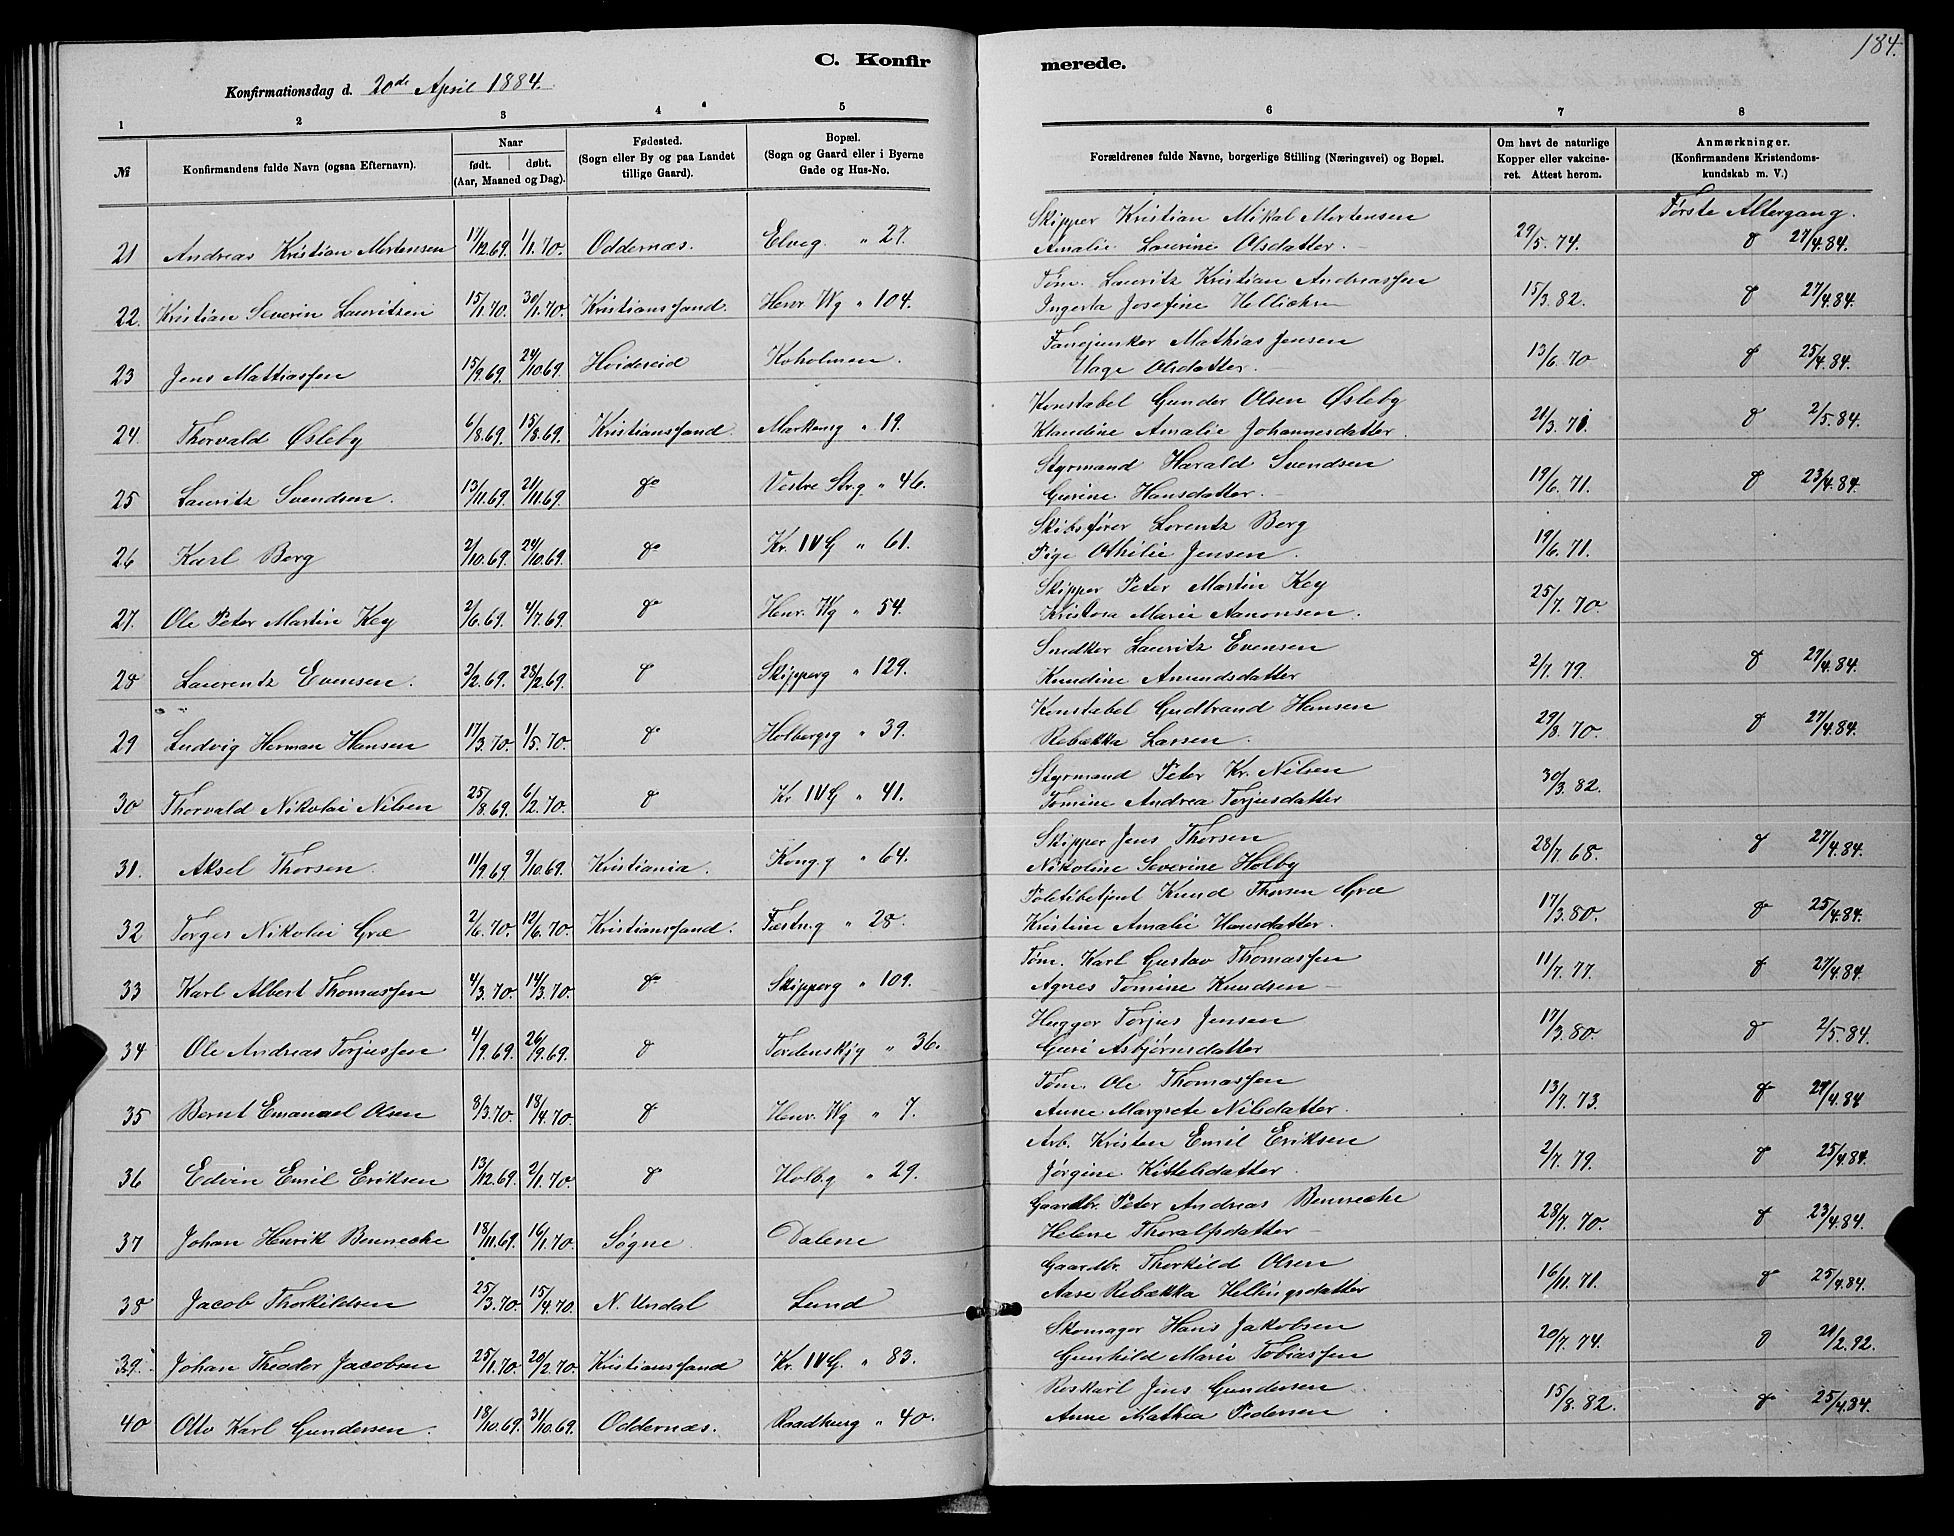 184.
C. Konfirmerede.
Konfirmationsdag d. 20de April 1884.
1 2 3 4 5 6 7 8
№ Konfirmandens fulde Navn (ogsaa Efternavn).
Naar født. døbt. (Aar, Maaned og Dag).
Fødested. (Sogn eller By og paa Landet tillige Gaard).
Bopæl. (Sogn og Gaard eller i Byerne Gade og Hus-No.
Forældrenes fulde Navne, borgerlige Stilling (Næringsvei) og Bopæl.
Om havt de naturlige Kopper eller vakcineret. Attest herom.
Anmærkninger. (Konfirmandens Kristendomskundskab m. V.)
Første Altergang.
Skipper Kristian Mikal Mortensen
21 Andreas Kristian Mortensen 17/12.69. 1/1.70. Oddernæs. Elveg. " 27. Amalie Laurine Olsdatter. 29/5.74. d 27/4.84.
Tøm. Lauritz Kristian Andreassen
22. Kristian Severin Lauritzen 15/1.70. 30/1.70. Kristianssand. Henr. Wg " 104. Ingerta Josefine 15/3.82. d 27/4.84.
Fanejunker Mathias Jensen
23 Jens Mathiassen 15/9.69. 24/10.69 Hvideseid Koholmen. Olsdatter. 13/6.70 d 25/4.84.
Konstabel Gunder Olsen Østeby
24. Thorvald Østeby 6/8.69. 15/8.69. Kristianssand. Markensg " 19. Klaudine Amalie Johannesdatter. 21/3.71. d 2/5.84.
Styrmand Harald Svendsen
25 Lauritz Svendsen. 13/11.69. 21/11.69. do Vestre Str.g " 46. Gurine Hansdatter. 19/6.71. d 23/4.84.
Skibsfører Lorentz Berg
26 Karl Berg 2/10.69. 24/10.69. do Kr. IV G " 61. Pige Othilie Jensen. 19/6.71.
Skipper Peter Martin Key
27. Ole Peter Martin Key 2/6.69. 4/7.69. d Henr. Wg " 54. Kristosa Marie Aanonsen. 25/7.70
Snedker Lauritz Evensen
28 Laurentz Evensen. 2/2.69. 28/2.69. d Skipperg " 129. Knudine Amundsdatter 2/7.79. d 27/4.84.
Konstabel Gudbrand Hansen
29 Ludvig Herman Hansen 17/3.70. 1/5.70. d Holbergsg " 39. Rebækka Larsen. 29/8.70. d 27/4.84.
Styrmand Peter Kr. Nilsen
30 Thorvald Nikolai Nilsen 25/8.69. 6/2.70. d Kr IV G " 41. Tomine Andrea Torjusdatter 30/3.82.
Skipper Jens Thorsen
31. Aksel Thorsen. 11/9.69 9/10.69. Kristiania. Kong.g " 64. Nikoline Severine Holby 28/7.68. d 27/4.84.
Politibetjent Knud Thorsen Græ
32 Torges Nikolai Græ 2/6.70. 12/6.70. Kristianssand. Fæstn.g " 28. Kristine Amalie Hansdatter. 17/3.80. d 25/4.84.
Tøm. Karl Gustav Thomassen
33 Karl Albert Thomassen 4/3.70. 14/3.70. do Skipperg " 109. Agnes Tomine Knudsen 11/7.77. d 27/4.84.
Hugger Torjus Jensen
34 Ole Andreas Torjussen 4/9.69. 26/9.69. d Tordenskjg " 36. Guri Asbjørnsdatter 17/3.80. d 2/5.84.
Tøm. Ole Thomassen
35 Bernt Emanuel Olsen 3/3.70. 18/4.70. d Henr. Wg " 7. Anne Margrete Nilsdatter. 13/7.73. d 27/4.84
Arb. Kristen Emil Eriksen
36 Edvin Emil Eriksen 13/12.69. 2/1.70. d Holb.g " 29. Jørgine Kittelsdatter. 2/7.79. d 25/4.84.
Gaardbr. Peter Andreas Bennecke
37 Johan Henrik Bennecke 18/11.69. 16/1.70. Søgne. Dalene Helene Thoralfsdatter 28/7.70. d 23/4.84.
Gaardbr. Thorkild Olsen
38 Jacob Thorkildsen 25/3.70. 15/4.70. N. Undal Lund Aase Rebækka Hellingsdatter 16/11.71. d 25/4.84.
Skomager Hans Jakobsen
39. Johan Theodor Jacobsen 25/1.70. 20/2.70. Kristianssand Kr. IV G. " 83. Gunhild Marie Tobiassen 20/7.74. d 21/2.92.
Jens Gundersen
40 Otto Karl Gundersen. 18/10.69. 31/10.69. Oddernæs. Raadhusg " 40. Anne Mathea Pedersen 15/8.82. d 25/4.84.